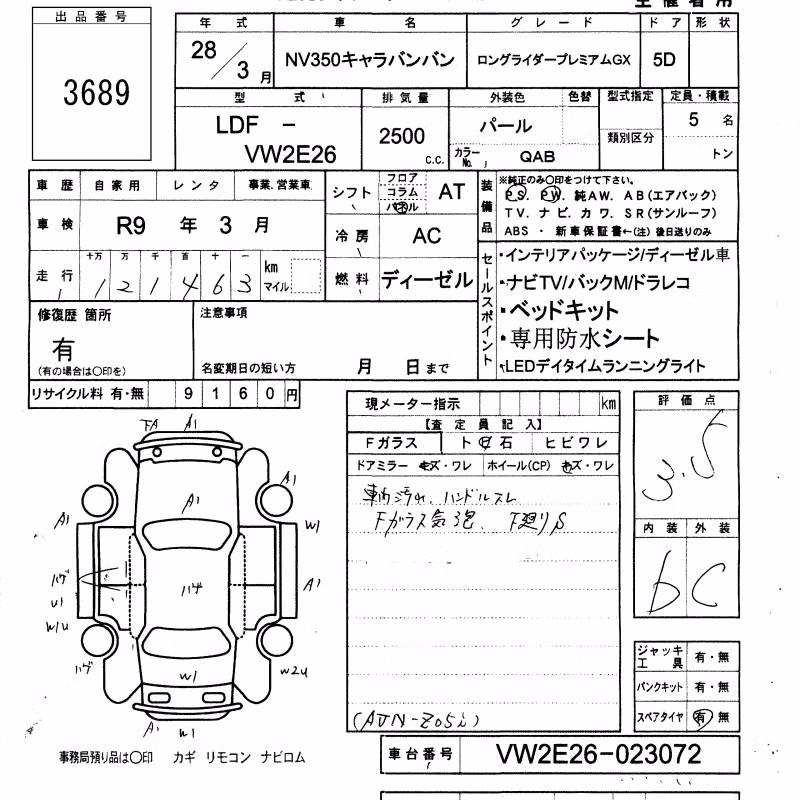 出品番号
3689
年 式
28/3月
車 名
NV350キャラバンバン
グレード
ロングライダープレミアムGX
ドア
5D
形状
型 式
LDF -
VW2E26
排気量
2500
c.c.
外装色
色替
パール
カラーNo.
QAB
型式指定
類別区分
定員・積載
5 名
トン
車歴 自家用 レンタ 事業.営業車
車検 R9 年 3 月
走行 十万 万 千 百 十 一
1 2 1 4 6 3 km マイル
シフト フロア コラム パネル AT
冷房 AC
燃料 ディーゼル
装備品
※純正のみ○印をつけて下さい。
PS. PW. 純AW. AB(エアバック)
TV. ナビ. カワ. SR(サンルーフ)
ABS ・ 新車保証書←(注) 後日送りのみ
セールスポイント
・インテリアパッケージ/ディーゼル車
・ナビTV/バックM/ドラレコ
・ベッドキット
・専用防水シート
・LEDデイタイムランニングライト
修復歴 箇所
有
(有の場合は○印を)
注意事項
名変期日の短い方 月 日まで
リサイクル料 有・無 9160円
現メーター指示 km
【査定員記入】
Fガラス ト 石 ヒビワレ
ドアミラー キズ・ワレ ホイール(CP) キズ・ワレ
車内汚れ、ハンドルスレ
Fガラス気泡、F廻りS
(AJN-Z05い)
評価点
3.5
内装 外装
b C
ジャッキ工具 有・無
パンクキット 有・無
スペアタイヤ 有・無
下A A1
A1
A1
A1
W1
ハゲ
U1
ハゲ
A1
W1U
ハゲ
W1
W2U
A1 W1
事務局預り品は○印 カギ リモコン ナビロム
車台番号 VW2E26-023072